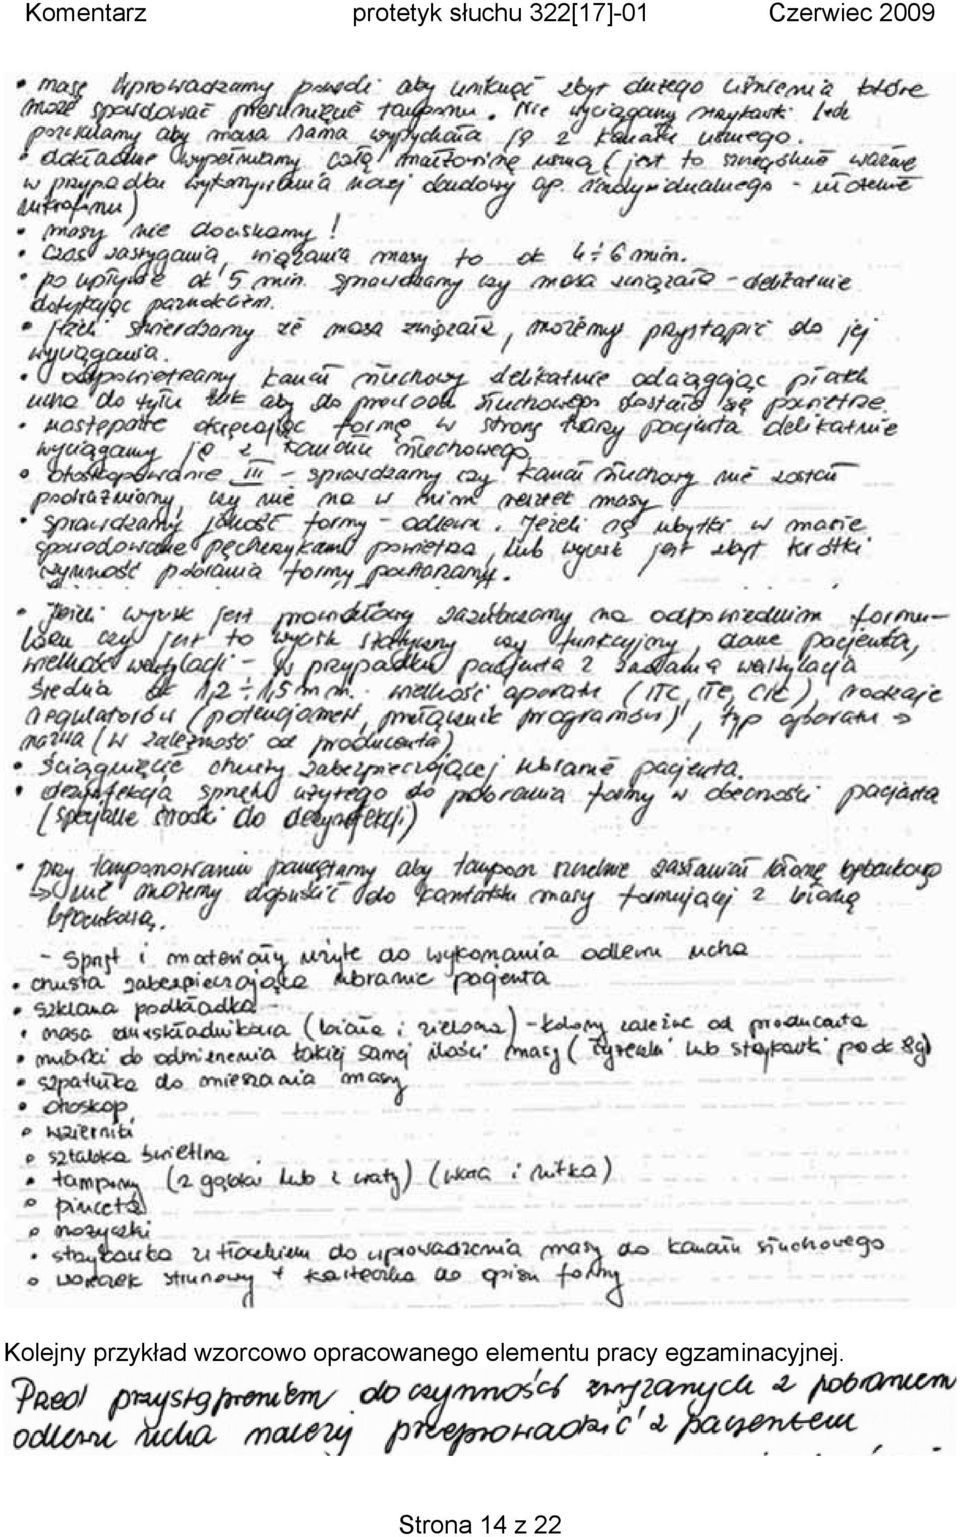 Komentarz protetyk słuchu 322[17]-01 Czerwiec 2009
• masę wprowadzamy powoli aby uniknąć zbyt dużego ciśnienia które
może spowodować przesunięcie tamponu. Nie wyciągamy strzykawki lecz
pozwalamy aby masa sama wypychała ją z kanału usznego.
• dokładnie wypełniamy całą małżowinę uszną (jest to szczególnie ważne
w przypadku wykonywania naszej obudowy np. indywidualnego - ułożenie
mikrofonu)
• masy nie dociskamy!
• czas zastygania, wiązania masy to ok 4÷6 min.
• po upływie ok 5 min. sprawdzamy czy masa związała - delikatnie
dotykając paznokciem.
• Jeżeli stwierdzamy że masa związała, możemy przystąpić do jej
wyciągania.
• odpowietrzamy kanał słuchowy delikatnie odciągając płatek
ucha do tyłu tak aby do przewodu słuchowego dostało się powietrze.
• następnie okręcając formę w stronę twarzy pacjenta delikatnie
wyciągamy ją z kanału słuchowego.
• otoskopowanie III - sprawdzamy czy kanał słuchowy nie został
podrażniony, czy nie ma w nim resztek masy!
• sprawdzamy jakość formy - odlewu. Jeżeli są ubytki w masie
spowodowane pęcherzykami powietrza, lub wycisk jest zbyt krótki
czynność pobrania formy powtarzamy.
• Jeżeli wycisk jest prawidłowy zaznaczamy na odpowiednim formu-
larzu czy jest to wycisk statyczny czy funkcyjny, dane pacjenta,
wielkość wentylacji - w przypadku pacjenta z zadania wentylacja
średnia ok 1,2÷1,5 mm. wielkość aparatu (ITC, ITE, CIC), rodzaje
regulatorów (potencjometr, przełącznik programów), typ aparatu →
nazwa (w zależności od producenta)
• ściągnięcie chusty zabezpieczającej ubranie pacjenta.
• dezynfekcja sprzętu użytego do pobrania formy w obecności pacjenta
(specjalne środki do dezynfekcji)
• przy tamponowaniu pamiętamy aby tampon szczelnie zasłaniał błonę bębenkową
→ nie możemy dopuścić do kontaktu masy formującej z błoną
bębenkową.
- Sprzęt i materiały użyte do wykonania odlewu ucha
• chusta zabezpieczająca ubranie pacjenta
• szklana podkładka
• masa dwuskładnikowa (biała i zielona) - kolory zależne od producenta
• miarki do odmierzenia takiej samej ilości masy (łyżeczki lub strzykawki po ok 8g)
• szpatułka do mieszania masy
• otoskop,
• wzierniki
• sztabka świetlna
• tampony (z gąbki lub z waty) (wata i nitka)
• pinceta
• nożyczki
• strzykawka z tłoczkiem do wprowadzenia masy do kanału słuchowego
• woreczek strunowy + karteczka do opisu formy
Kolejny przykład wzorcowo opracowanego elementu pracy egzaminacyjnej.
Przed przystąpieniem do czynności związanych z pobraniem
odlewu ucha należy przeprowadzić z pacjentem
Strona 14 z 22